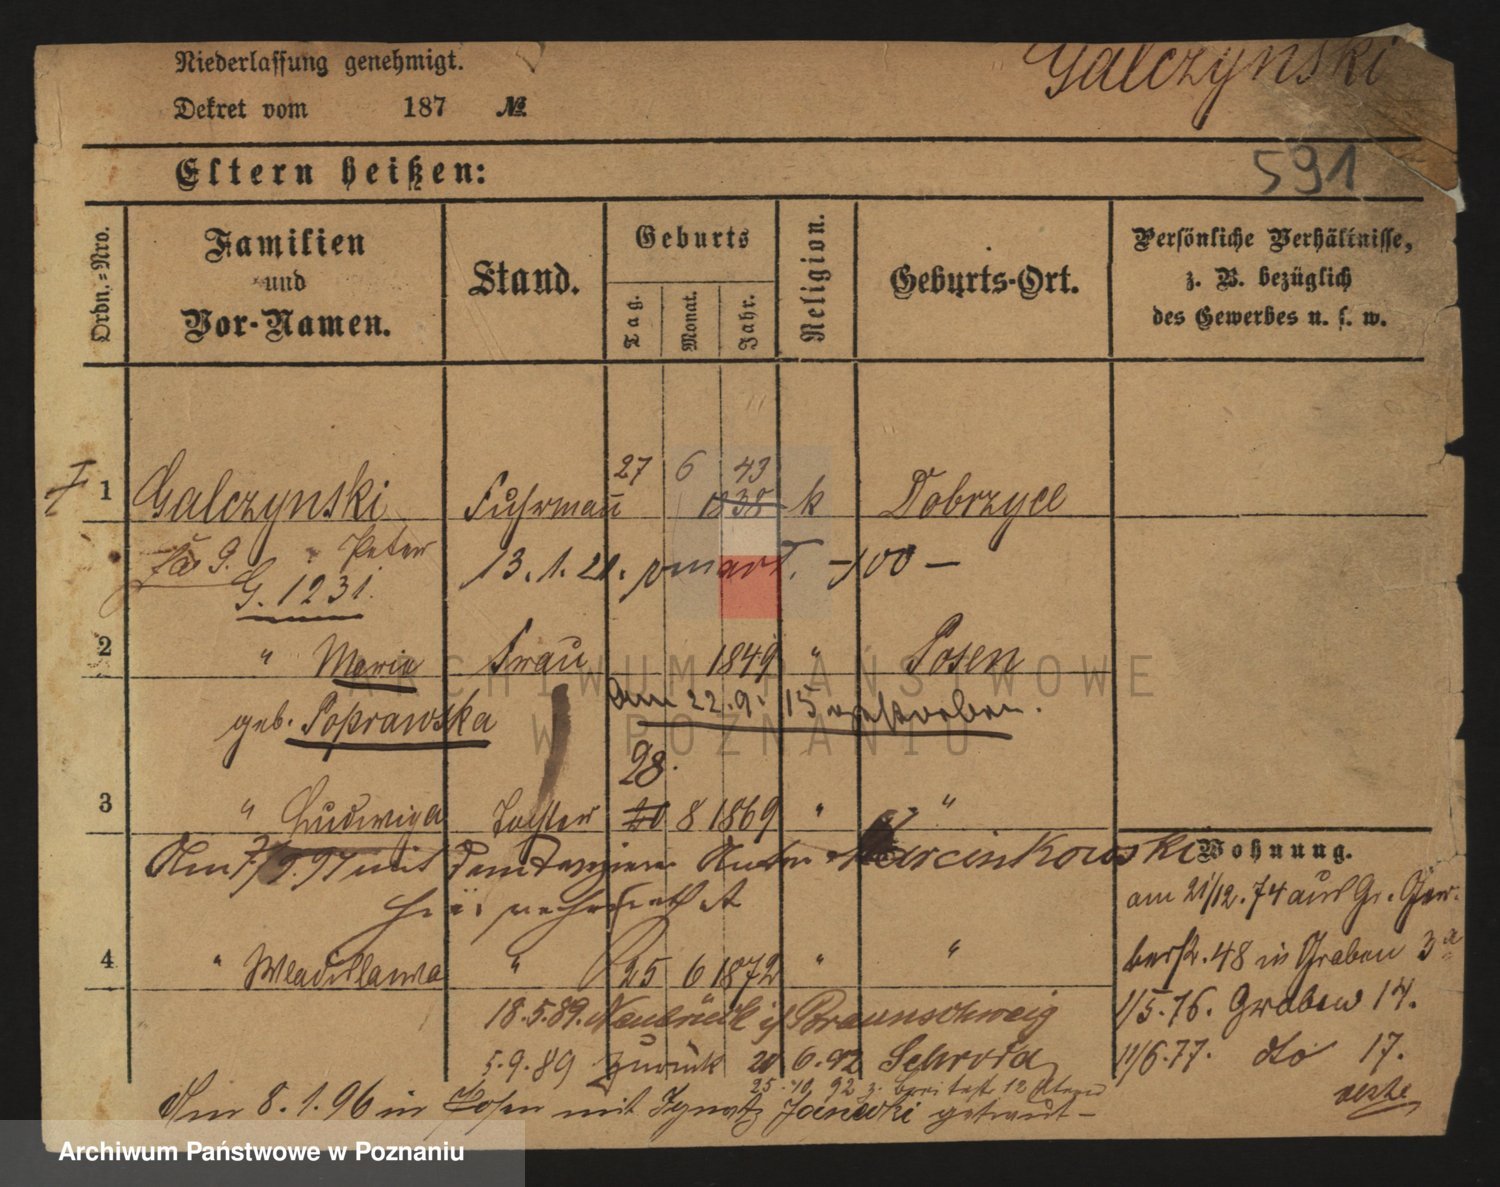 Niederlassung genehmigt.
Dekret vom 187 №
Galczynski
Eltern heißen:
591
Ordn.-Nro.
Familien
und
Vor-Namen.
Stand.
Geburts
Tag.
Monat.
Jahr.
Religion.
Geburts-Ort.
Persönliche Verhältnisse,
z. B. bezüglich
des Gewerbes u. s. w.
27 6 43
1 Galczynski Fuhrmann 1838 k Dobrzyce
Peter
13.1.21.
G. 1231.
2 " Marie Frau 1849 " Posen
am 22.9.15 verstorben.
geb. Poprawska
28.
3 " Ludwiga Tochter 20 8 1869 " "
Am 7/9.97 mit dem Marcinkowski
Wohnung.
am 21/12.74 aus Gr. Ger-
berstr. 48 in Graben 3a
4 " Wladislawa " 25 6 1872 " "
18.5.89. Braunschweig
1/5.76. Graben 14.
5.9.89 zurück 20 6.92 Schroda
11/6.77. dto 17.
25.10.92 z.
Am 8.1.96 in Posen mit Ignatz getraut-
ARCHIWUM PAŃSTWOWE
W POZNANIU
Archiwum Państwowe w Poznaniu